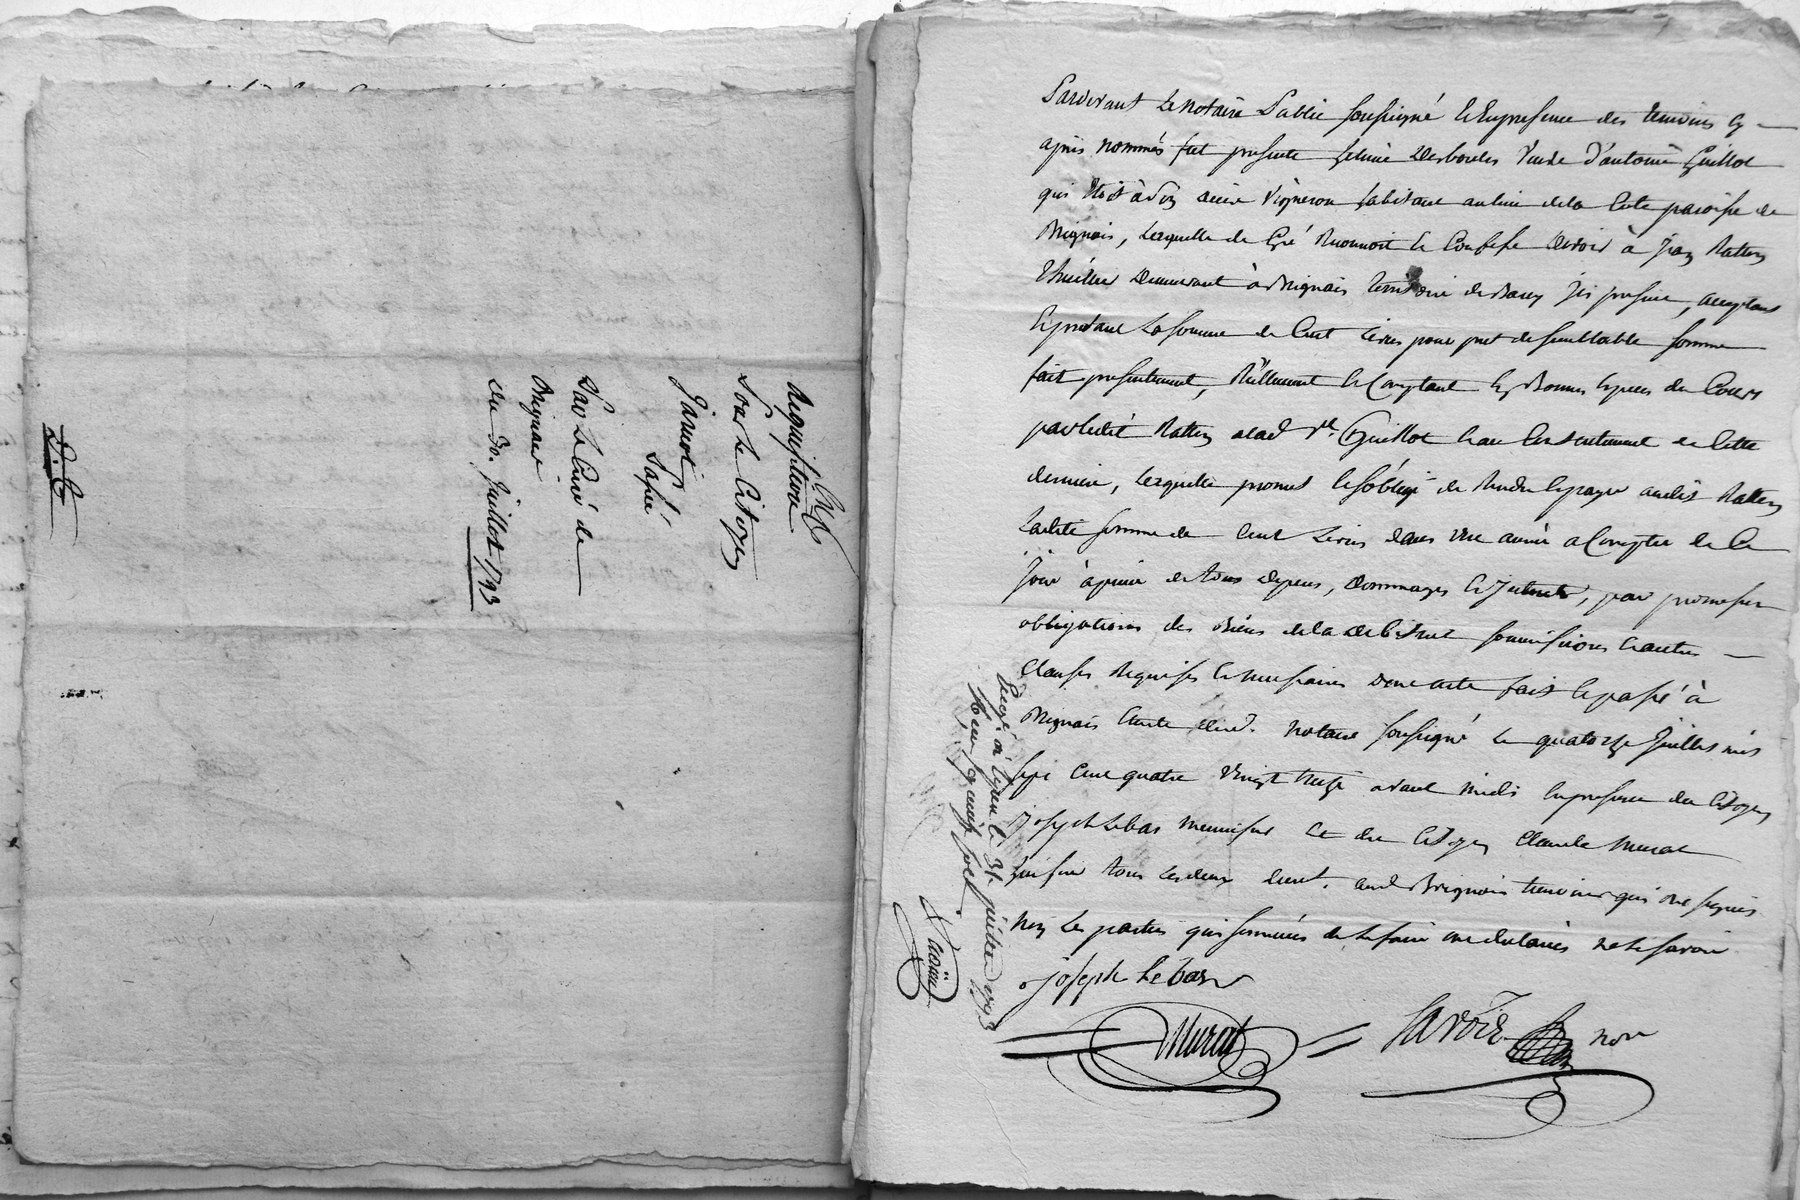 Requisition
Pour Le Citoyen
Jamot
Passé
Par Le Curé de
Brignais
du 30. Juillet 1793
Pardevant Le Notaire Public soussigné et En presence des temoins Cy
apres nommés fut presente Desbordes Veuve d'antoine Guillot
qui Etoit à Son Vigneron habitant au lieu dela Cote paroisse de
Brignais, Laquelle de Gré Reconnoit et Confesse devoir à Jean Ratton
demeurant à Brignais territoire de Barey Ici present, acceptant
La somme de Cent Livres pour pret de semblable somme
fait presentement, Réellement et Comptant En Bonnes Especes de Cours
par Ledit Ratton alad. Ve. Guillot Consentement de Cette
derniere, Laquelle promet et s'oblige de Rendre et payer audit Ratton
Ladite somme de Cent Livres dans Une année a Compter de Ce
Jour à peine de tous depens, dommages et Interets, par promesse
obligations des Biens dela debitrice soumissions et autres
Clauses Requises et necessaires dont acte fait et passé à
Brignais Etude dud. Notaire soussigné Le quatorze Juillet mil
sept Cent quatre Vingt treize avant midi En presence du Citoyen
Joseph Lebas menuisier et du Citoyen Claude Murat
tous Les deux demt. aud. Brignais temoins qui ont signés
Non Les parties qui sommées de Le faire ont declarées ne Le savoir
joseph Le bas
Murat
Lavoix Nore
Enregé à Lyon le 31 juillet 1793
Reçu quinze sols.